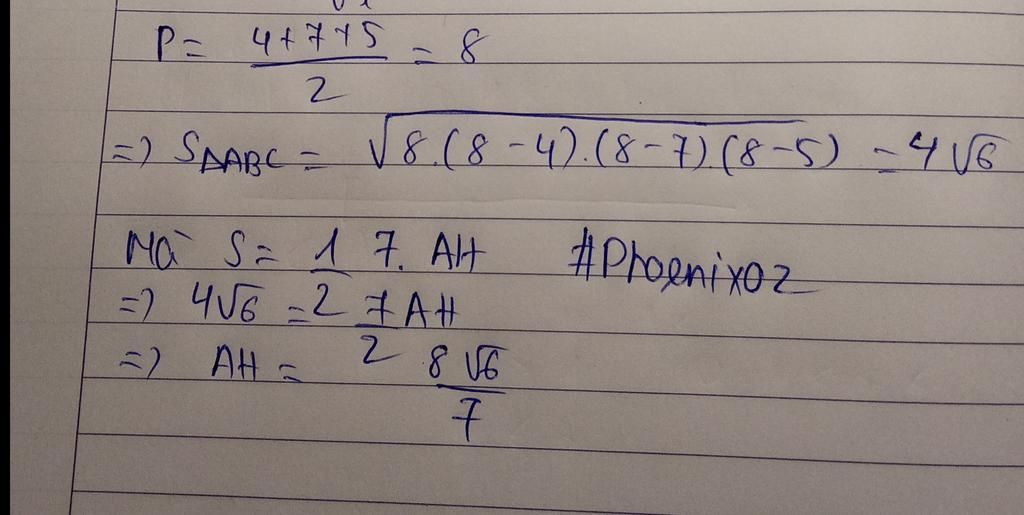 P = 4+7+5/2 = 8
=> SΔABC = √8.(8-4).(8-7)(8-5) = 4√6
Mà S = 1/2 7. AH #Phoenixoz
=> 4√6 = 7AH/2
=> AH = 8√6/7